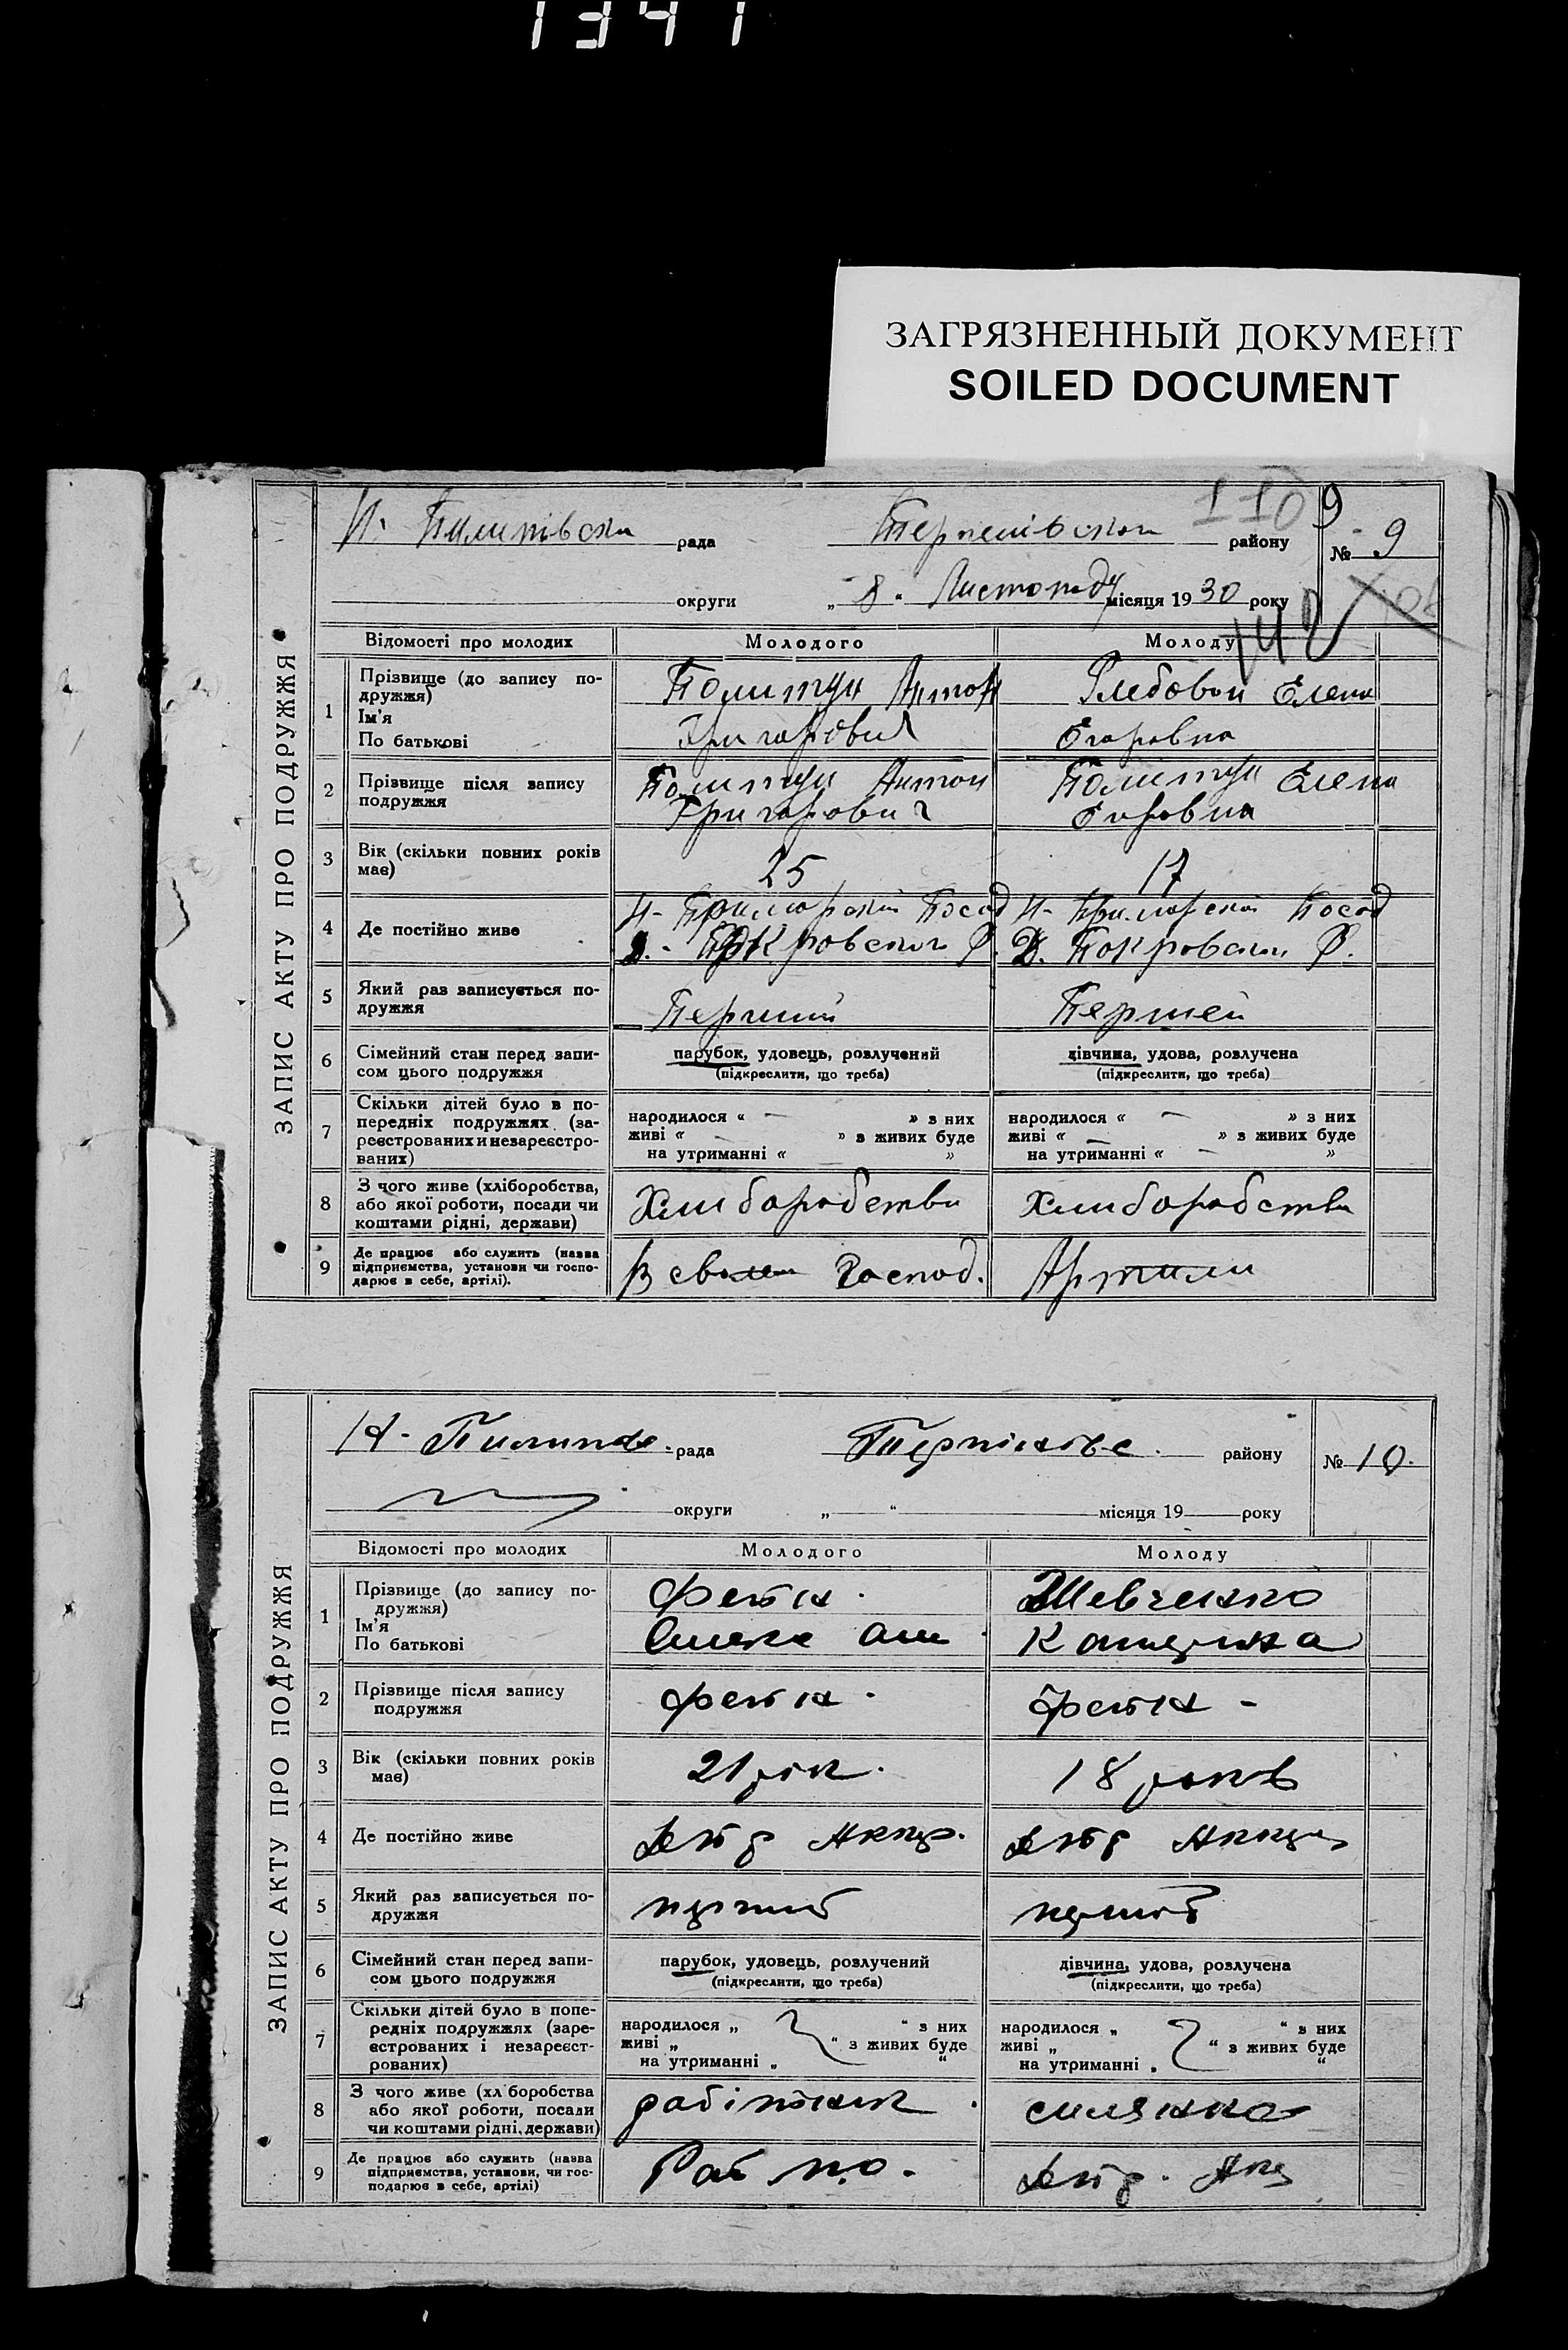 1341
ЗАГРЯЗНЕННЫЙ ДОКУМЕНТ
SOILED DOCUMENT
ЗАПИС АКТУ ПРО ПОДРУЖЖЯ
110 9
Н. Пилипівска рада району № 9
округи „ 8 " Листопаду місяця 1930 року
142
Відомості про молодих Молодого Молоду
1 Прізвище (до запису по-
дружжя)
Ім'я
По батькові
Политун Антон
Григорович
Глебовой Елена
Егоровна
2 Прізвище після запису
подружжя
Политун Антон
Григорович
Политун Елена
Егоровна
3 Вік (скільки повних років
має)
25 17
4 Де постійно живе
Н- Приморский Посад Н- Приморской Посад
Д. Покровского Р. Д. Покровском Р.
5 Який раз записується по-
дружжя
Перший Першей
6 Сімейний стан перед запи-
сом цього подружжя
парубок, удовець, розлучений
(підкреслити, що треба)
дівчина, удова, розлучена
(підкреслити, що треба)
7 Скільки дітей було в по-
передніх подружжях (за-
реєстрованих и незареєстро-
ваних)
народилося « — » з них
живі « — » з живих буде
на утриманні « »
народилося « — » з них
живі « — » з живих буде
на утриманні « — »
8 З чого живе (хліборобства,
або якої роботи, посади чи
коштами рідні, держави)
Хлиборобства Хлиборобства
9 Де працює або служить (назва
підприємства, установи чи госпо-
дарює в себе, артілі).
В своем Господ. Артили
ЗАПИС АКТУ ПРО ПОДРУЖЖЯ
Н- Пилипов. рада району № 10.
округи „ " місяця 19 року
Відомості про молодих Молодого Молоду
1 Прізвище (до запису по-
дружжя)
Ім'я
По батькові
Шевченко
Катерина
2 Прізвище після запису
подружжя
3 Вік (скільки повних років
має)
21 рік. 18 років
4 Де постійно живе
5 Який раз записується по-
дружжя
перший
6 Сімейний стан перед запи-
сом цього подружжя
парубок, удовець, розлучений
(підкреслити, що треба)
дівчина, удова, розлучена
(підкреслити, що треба)
7 Скільки дітей було в попе-
редніх подружжях (заре-
єстрованих і незареєст-
рованих)
народилося „ " з них
живі „ " з живих буде
на утриманні „ "
народилося „ " з них
живі „ " з живих буде
на утриманні „ "
8 З чого живе (хл боробства
або якої роботи, посади
чи коштами рідні, держави)
робітник . силянка
9 Де працює або служить (назва
підприємства, установи, чи гос-
подарює в себе, артілі)